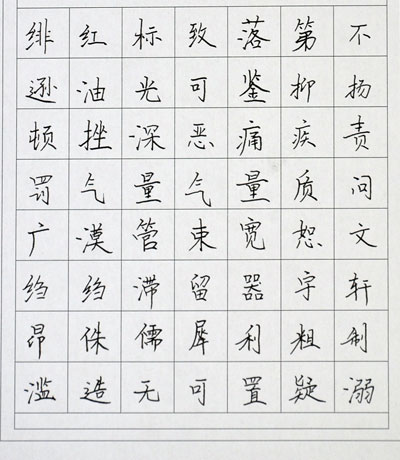 绯红标致落第不
逊油光可鉴抑扬
顿挫深恶痛疾责
罚气量气量质问
广漠管束宽恕文
绉绉滞留器宇轩
昂侏儒犀利粗制
滥造无可置疑溺